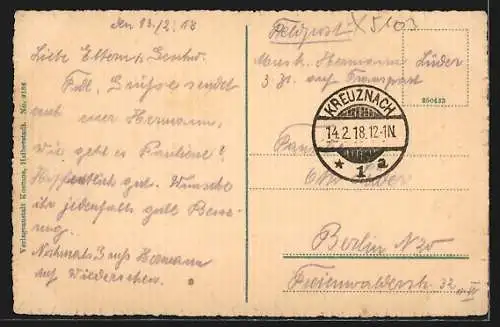 den 13/2. 18
Liebe Eltern u. Geschw.
Frdl. Grüsse sendet
euch euer Hermann,
Wie geht es Pauliene?
Hoffentlich gut. Wünsche
ihr jedenfalls gute Besse-
rung.
Nochmals Gruss Hermann
auf Wiedersehen.
Verlagsanstalt Kosmos, Halberstadt. No. 9186
Feldpost
Musk. Hermann Lüder
3. Zt. auf Transport
250433
KREUZNACH
14.2.18.12-1N.
* 1 a
Berlin N 20
Freienwalderstr. 32